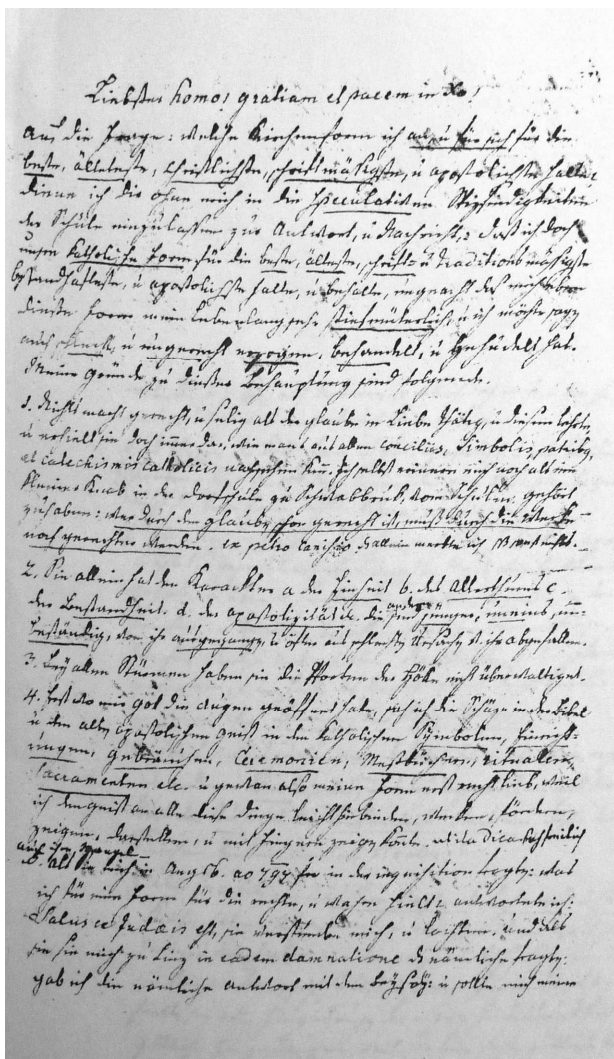 Liebster Homo! gratiam et pacem in Xo!
Auf die Frage: welche Kirchenform ich an u für sich für die
beste, älteste, christlichste, schriftmäßigste, u apostolichste halte
diene ich dir ohne mich in die speculativen Spizfindigkeiten
der Schule einzulassen zur Antwort, u Nachricht, daß ich doch
unsere Katholische Form für die beste, älteste, schrift- u traditionsmäßigste
standhafteste, u apostolichste halte, u behalte, ungeacht das mich eben
diese Form mein Lebenlang sehr stiefmüterlich, u ich möchte sagen
auch u ungerecht erzogen, behandelt, u gehudelt hat.
Meine Gründe zu dieser Behauptung sind folgende.
1. Nichts macht gerecht, u selig als der glaube in Liebe thätig, u diesen lehrte,
u erhielt sie doch immer das, wie man aus allen conciliis, Simbolis, patribus,
et catechismis catholicis nachsehen kan. Ich selbst erinnere mich noch als ein
kleiner Knab in der Dorfschule zu gehört
zuhaben: wer durch den glauben schon gerecht ist, muß durch die Werke
noch gerechter werden. ex petro canisio
2. Sie allein hat den Karackter a der Einheit b. des Alterthums c.
der Bestandheit. d. der apostolizität. die andern sind jünger, uneins, un-
beständig, von ihr ausgegangen, u öfter aus schlechter Ursache v ihr abgefallen.
3. Bey allen Stürmen haben sie die Pforten der Hölle nicht überwältiget.
4. Erst wo mir got die augen geöffnet hat, sah ich die Schäze in der Bibel
u den alten apostolischen geist in den katholischen Symbolen, Einricht-
ungen, gebräuchen, Ceremonien, Meßbüchern, ritualen,
Sacramenten etc. u gewan also meine Form erst recht lieb, weil
ich den geist an alle diese dinge leicht hinbinden, wecken, fördern,
zeigen, darstellen, u mit fingern zeigen konte.
auch ihre Mängel
5. Als sie mich in Augsb. ao 1797 in der inquisition fragten: was
ich für eine Form für die rechte, u wahre hielt? antwortete ich:
Salus ex Judaeis est, sie verstunden mich, u lachten. und als
sie mich zu Linz in eadem damnatione das nämliche fragten:
gab ich die nämliche antwort mit dem Beysaz: u sollte mich meine